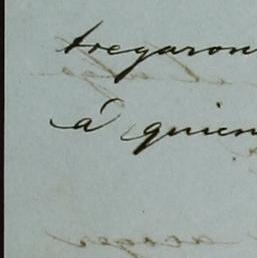 tregaron
á quien